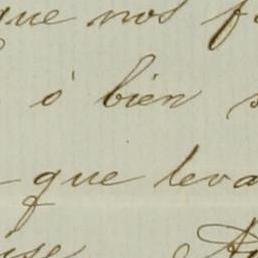 que nos
ó bien
que leva